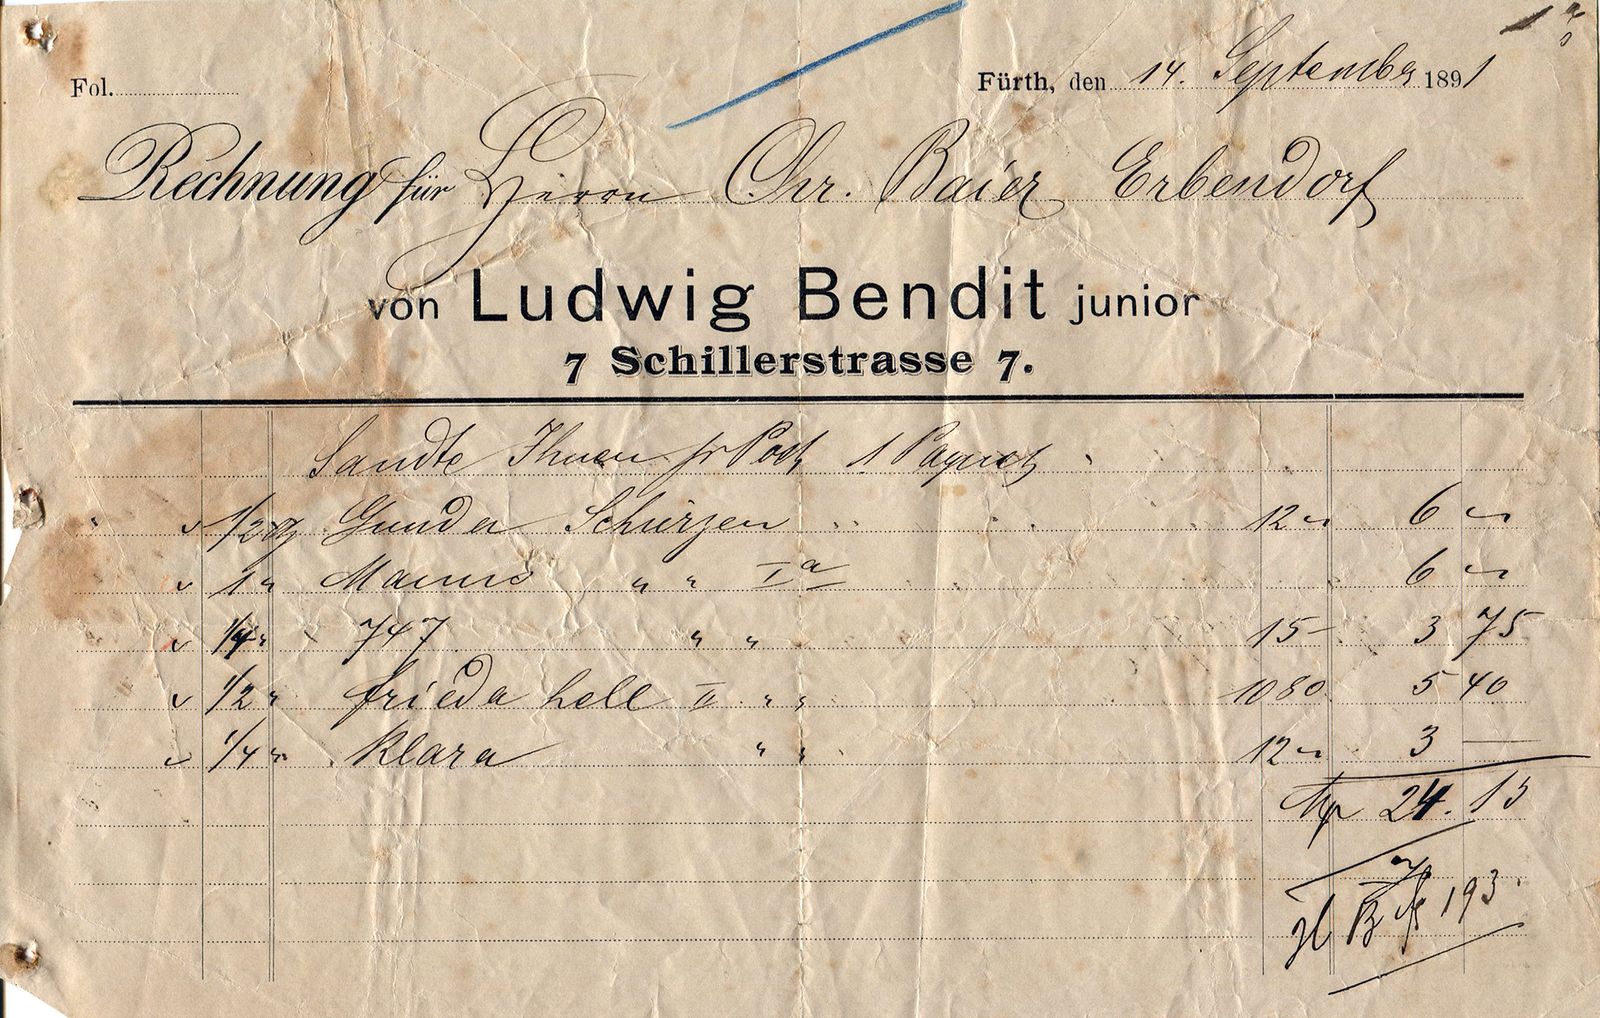 Fol.
Fürth, den 14. September 1891
Rechnung für Herrn Chr. Baier Erbendorf
von Ludwig Bendit junior
7 Schillerstrasse 7.
Sandte Ihnen pr Post 1 Paquet
1/2 Gunda Schürzen 12 6
1 " " " Ia 6
1/4 " 747 " " 15– 3 75
1/2 " frieda hell II " " 10 80 5 40
1/4 " Klara " " 12 3 —
24.15
193